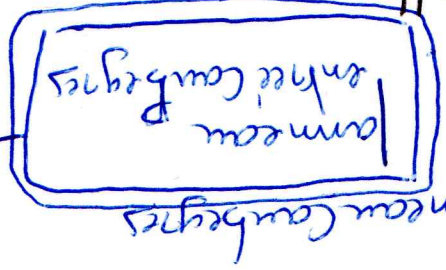 neau Caubeyres
Panneau
entrée Caubeyres